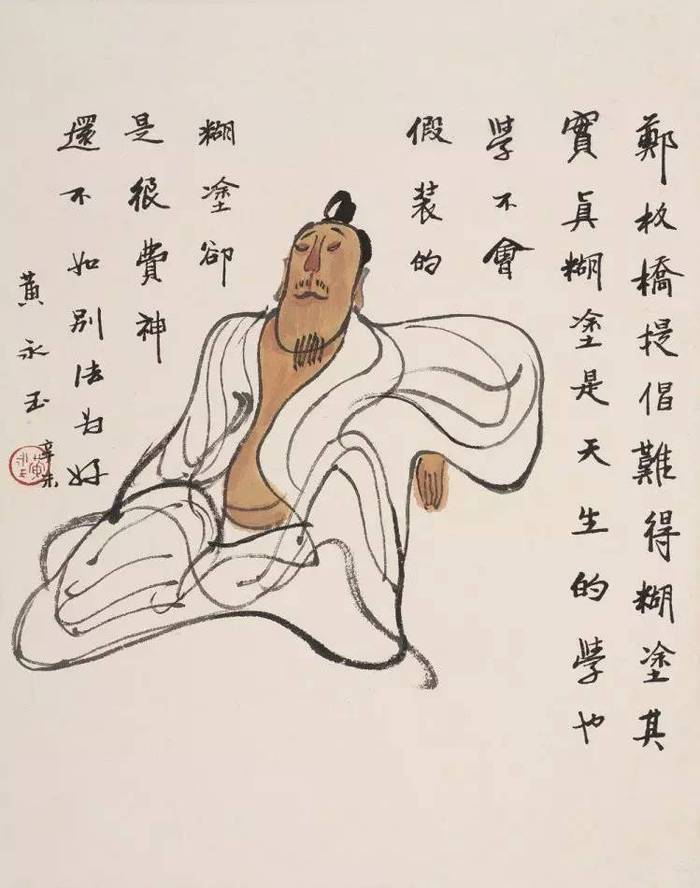 鄭板橋提倡難得糊塗其
實眞糊塗是天生的學也
學不會
假装的
糊塗卻
是很費神
還不如别法为好
黄永玉
辛未